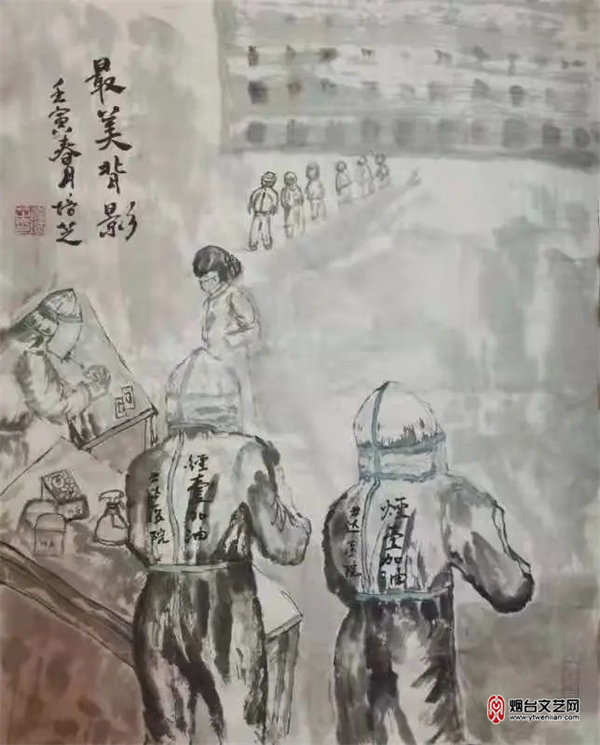 最美背影
壬寅春月培芝
煙臺加油
业达医院
煙臺加油
业达医院
烟台文艺网
www.ytwenlian.com